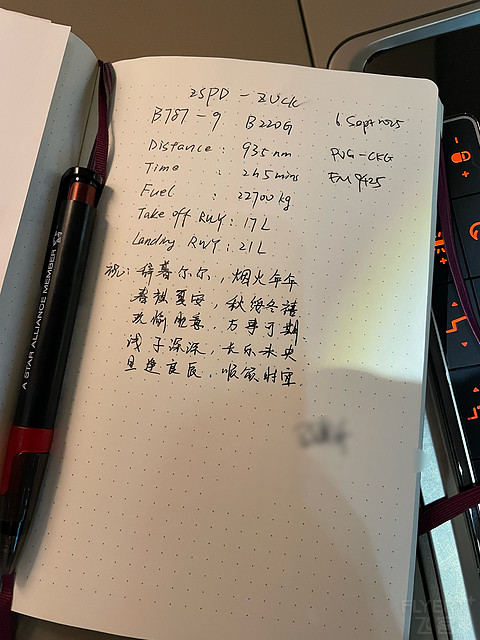 ZSPD - ZUCK
B787-9 B220G 6 Sept 2025
Distance : 935 nm PVG-CKG
Time : 2h 5mins FM9425
Fuel : 22700 kg
Take off RWY : 17L
Landing RWY : 21L
祝：辞暮尔尔，烟火年年
春祺夏安，秋绥冬禧
欢愉胜意，万事可期
浅予深深，长乐未央
且逢良辰，顺颂时宜.
A STAR ALLIANCE MEMBER